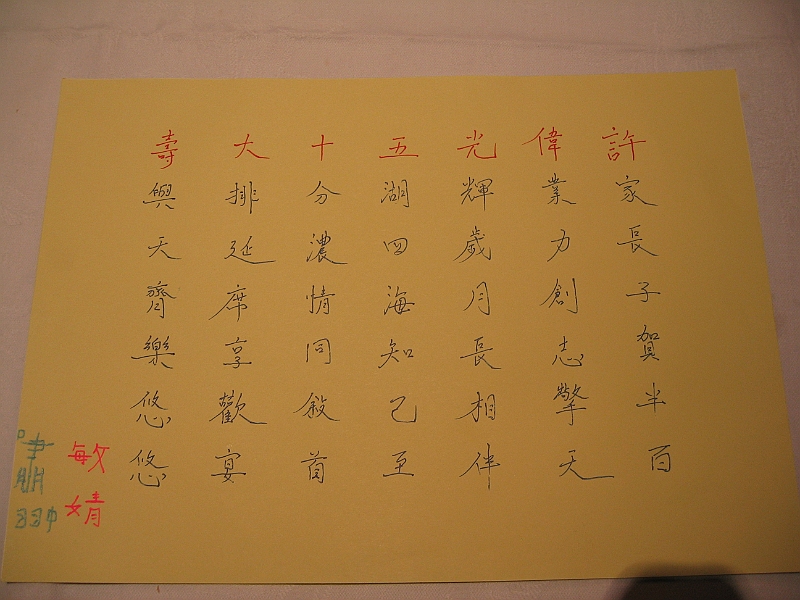 許家長子賀半百
偉業力創志擎天
光輝歲月長相伴
五湖四海知己至
十分濃情同敘首
大排延席享歡宴
壽與天齊樂悠悠
敏婧